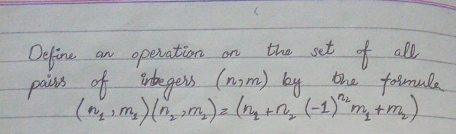 Define an operation on the set of all
pairs of integers (n,m) by the formula
(n₁,m₁)(n₂,m₂)=(n₁+n₂ (-1)^n₂ m₁+m₂)